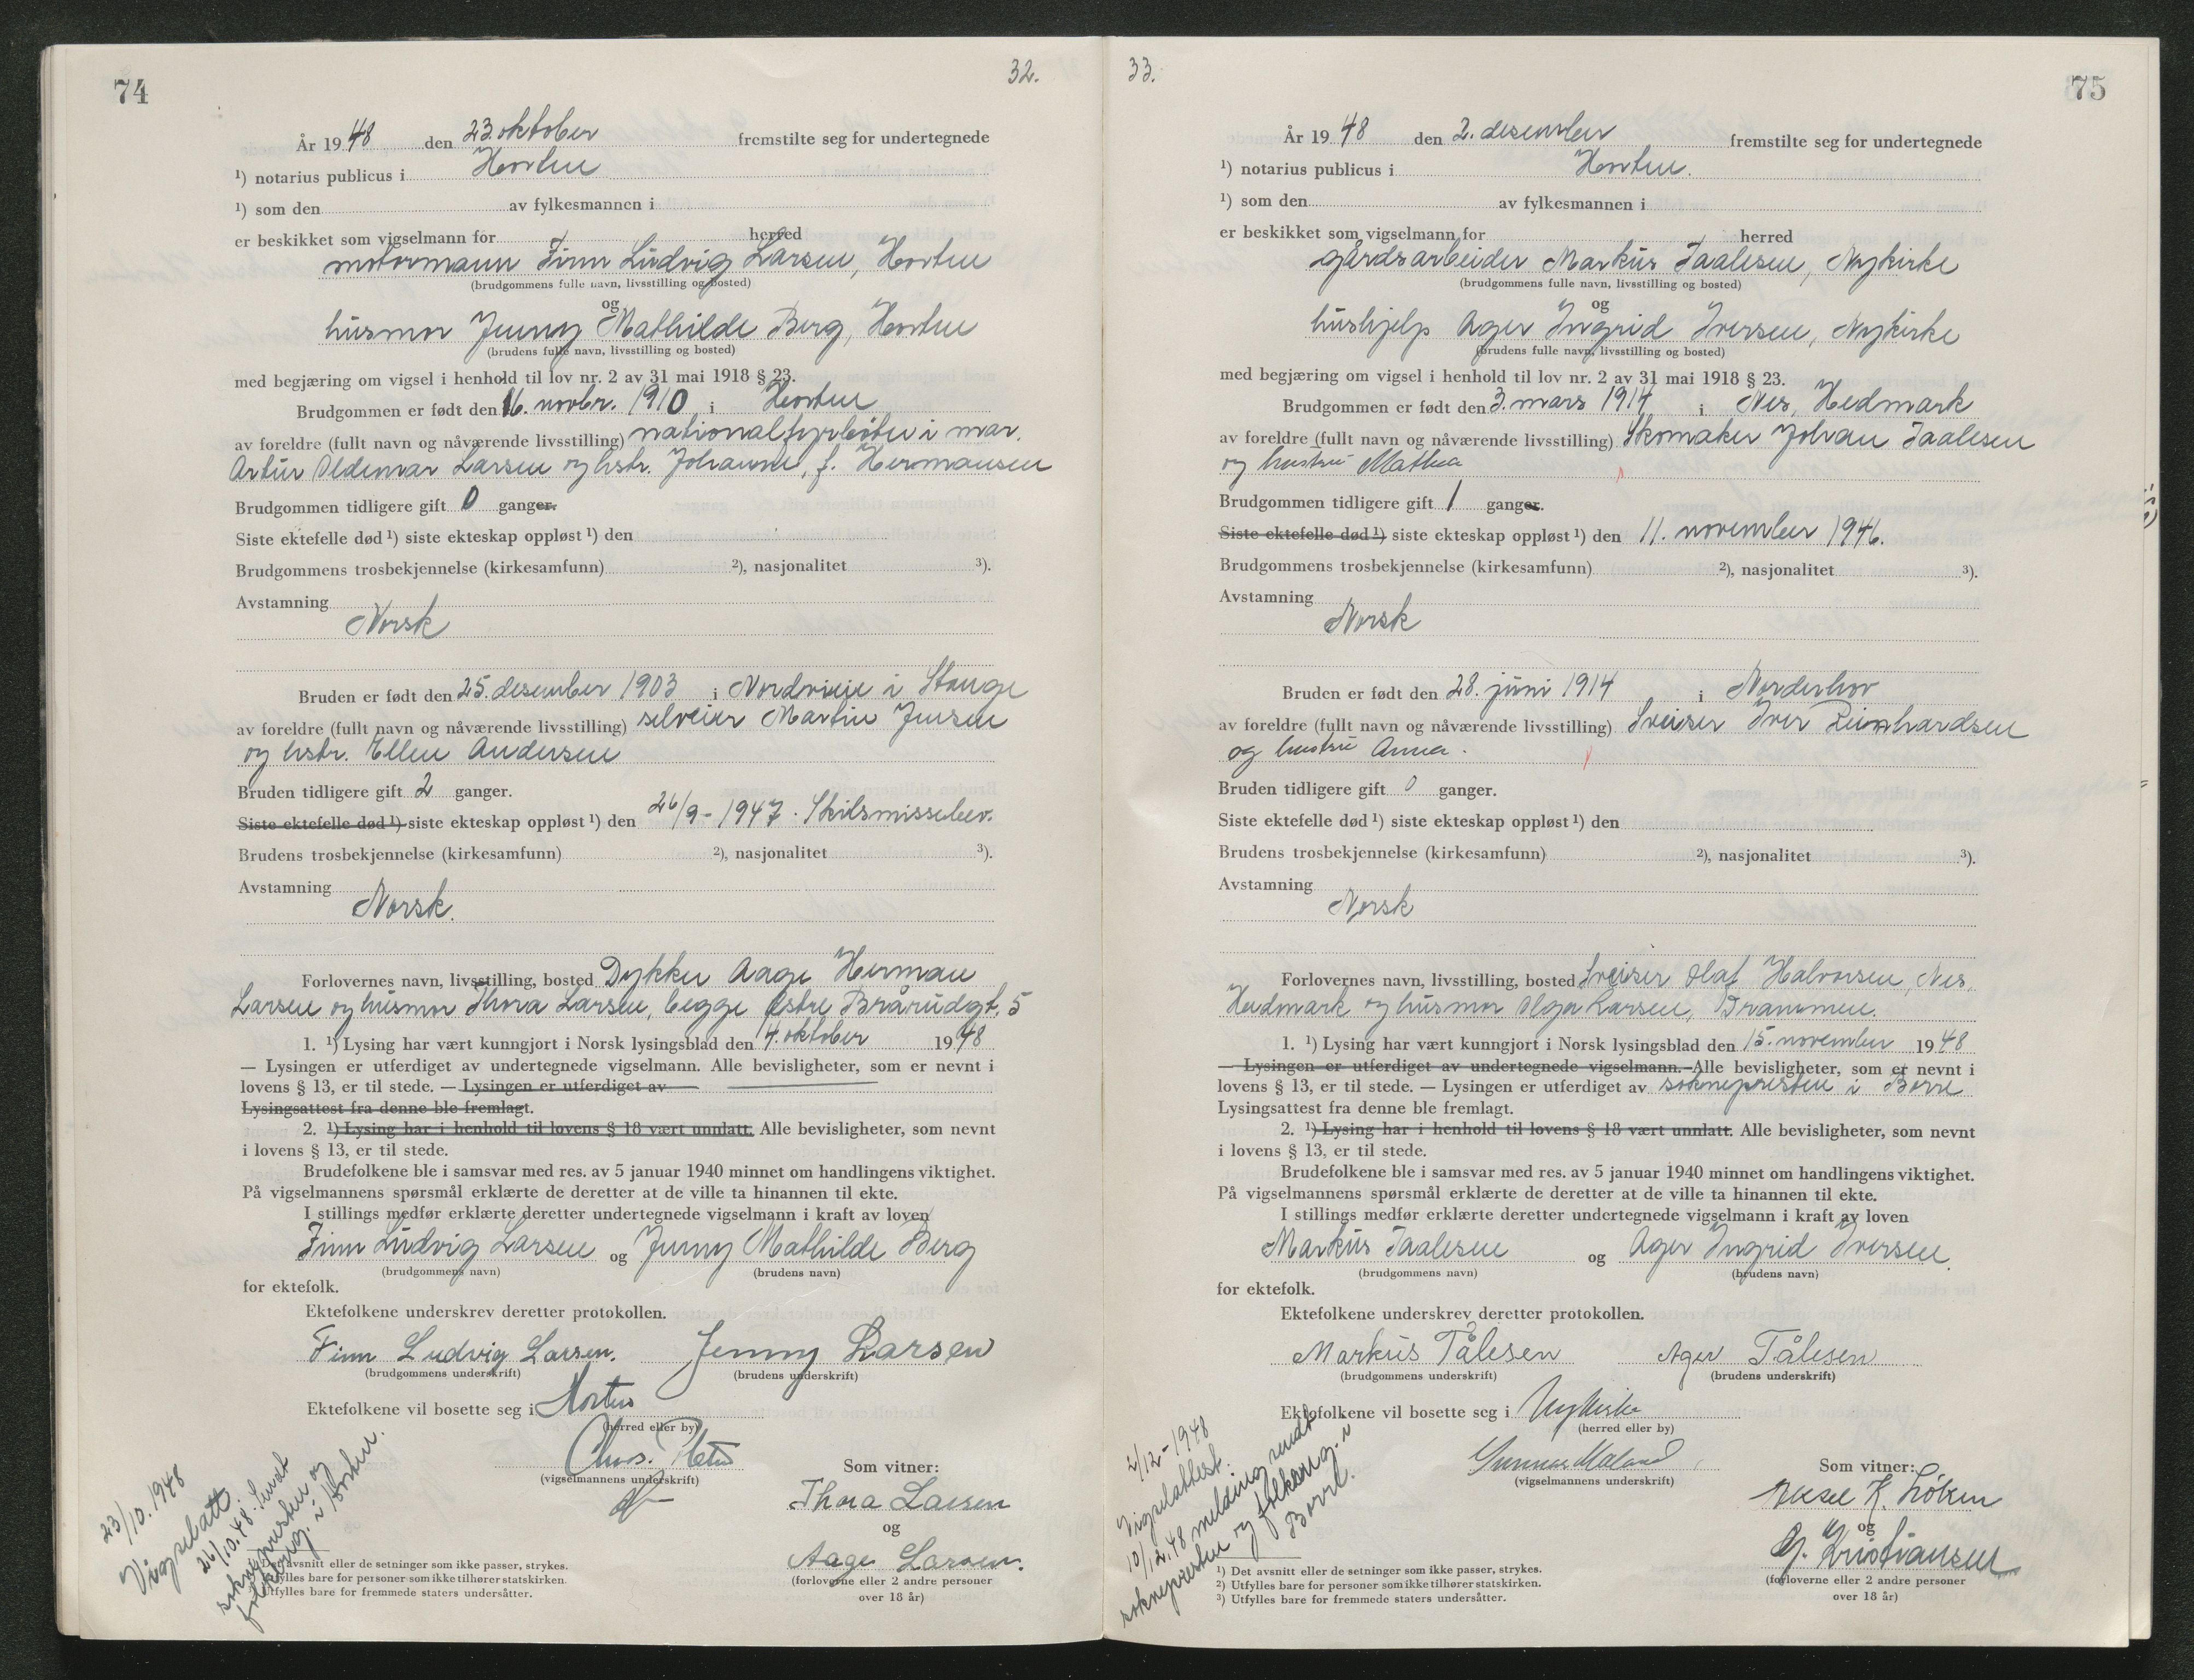 74
32.
År 1948 den 23. oktober fremstilte seg for undertegnede
¹) notarius publicus i Horten
¹) som den av fylkesmannen i
er beskikket som vigselmann for herred
motormann Finn Ludvig Larsen, Horten
(brudgommens fulle navn, livsstilling og bosted)
og
husmor Jenny Mathilde Berg, Horten
(brudens fulle navn, livsstilling og bosted)
med begjæring om vigsel i henhold til lov nr. 2 av 31 mai 1918 § 23.
Brudgommen er født den 16. novbr. 1910 i Horten
av foreldre (fullt navn og nåværende livsstilling) nationalfyrbøter i mar.
Artur Oldemar Larsen og hstr. Johanne, f. Hermansen
Brudgommen tidligere gift 0 ganger.
Siste ektefelle død ¹) siste ekteskap oppløst ¹) den
Brudgommens trosbekjennelse (kirkesamfunn) ²), nasjonalitet ³).
Avstamning
Norsk
Bruden er født den 25. desember 1903 i Nordvie i Stange
av foreldre (fullt navn og nåværende livsstilling) selveier Martin Jensen
og hstr. Ellen Andersen
Bruden tidligere gift 2 ganger.
Siste ektefelle død ¹) siste ekteskap oppløst ¹) den 26/9-1947. Skilsmissebev.
Brudens trosbekjennelse (kirkesamfunn) ²), nasjonalitet ³).
Avstamning
Norsk.
Forlovernes navn, livsstilling, bosted Dykker Aage Herman
Larsen og husmor Thora Larsen, begge Østre Brårudgt. 5
1. ¹) Lysing har vært kunngjort i Norsk lysingsblad den 4. oktober 1948
— Lysingen er utferdiget av undertegnede vigselmann. Alle bevisligheter, som er nevnt i
lovens § 13, er til stede. — Lysingen er utferdiget av
Lysingsattest fra denne ble fremlagt.
2. ¹) Lysing har i henhold til lovens § 18 vært unnlatt. Alle bevisligheter, som nevnt
i lovens § 13, er til stede.
Brudefolkene ble i samsvar med res. av 5 januar 1940 minnet om handlingens viktighet.
På vigselmannens spørsmål erklærte de deretter at de ville ta hinannen til ekte.
I stillings medfør erklærte deretter undertegnede vigselmann i kraft av loven
Finn Ludvig Larsen og Jenny Mathilde Berg
(brudgommens navn) (brudens navn)
for ektefolk.
Ektefolkene underskrev deretter protokollen.
Finn Ludvig Larsen. Jenny Larsen
(brudgommens underskrift) (brudens underskrift)
Ektefolkene vil bosette seg i Horten
(herred eller by)
Chris.
(vigselmannens underskrift)
Som vitner:
Thora Larsen
og
Aage Larsen.
(forloverne eller 2 andre personer
over 18 år)
23/10.1948
Vigselatt.
26/10.48: Sendt
sokneprestен og
folkereg. i Horten.
¹) Det avsnitt eller de setninger som ikke passer, strykes.
²) Utfylles bare for personer som ikke tilhører statskirken.
³) Utfylles bare for fremmede staters undersåtter.
33.
75
År 1948 den 2. desember fremstilte seg for undertegnede
¹) notarius publicus i Horten.
¹) som den av fylkesmannen i
er beskikket som vigselmann for herred
gårdsarbeider Markus Taalesen, Nykirke
(brudgommens fulle navn, livsstilling og bosted)
og
hushjelp Ager Ingrid Iversen, Nykirke
(brudens fulle navn, livsstilling og bosted)
med begjæring om vigsel i henhold til lov nr. 2 av 31 mai 1918 § 23.
Brudgommen er født den 3. mars 1914 i Nes, Hedmark
av foreldre (fullt navn og nåværende livsstilling) Skomaker Johan Taalesen
og hustru Mathea
Brudgommen tidligere gift 1 ganger.
Siste ektefelle død ¹) siste ekteskap oppløst ¹) den 11. november 1946.
Brudgommens trosbekjennelse (kirkesamfunn) ²), nasjonalitet ³).
Avstamning
Norsk
Bruden er født den 28. juni 1914 i Norderhov
av foreldre (fullt navn og nåværende livsstilling) Sveiser Iver Reinhardsen
og hustru Anna.
Bruden tidligere gift 0 ganger.
Siste ektefelle død ¹) siste ekteskap oppløst ¹) den
Brudens trosbekjennelse (kirkesamfunn) ²), nasjonalitet ³).
Avstamning
Norsk
Forlovernes navn, livsstilling, bosted Sveiser Olaf Halvorsen, Nes,
Hedmark og husmor Olga Larsen, Drammen.
1. ¹) Lysing har vært kunngjort i Norsk lysingsblad den 15. november 1948
— Lysingen er utferdiget av undertegnede vigselmann. — Alle bevisligheter, som er nevnt i
lovens § 13, er til stede. — Lysingen er utferdiget av sokneprester i Borre
Lysingsattest fra denne ble fremlagt.
2. ¹) Lysing har i henhold til lovens § 18 vært unnlatt. Alle bevisligheter, som nevnt
i lovens § 13, er til stede.
Brudefolkene ble i samsvar med res. av 5 januar 1940 minnet om handlingens viktighet.
På vigselmannens spørsmål erklærte de deretter at de ville ta hinannen til ekte.
I stillings medfør erklærte deretter undertegnede vigselmann i kraft av loven
Markus Taalesen og Ager Ingrid Iversen.
(brudgommens navn) (brudens navn)
for ektefolk.
Ektefolkene underskrev deretter protokollen.
Markus Tålesen Ager Tålesen
(brudgommens underskrift) (brudens underskrift)
Ektefolkene vil bosette seg i Nykirke
(herred eller by)
Gunnar
(vigselmannens underskrift)
Som vitner:
K. Løken
og
G. Kristiansen
(forloverne eller 2 andre personer
over 18 år)
2/12-1948
Vigselattest.
10/12.48 melding sendt
sokneprestен og folkereg. i
Borre.
¹) Det avsnitt eller de setninger som ikke passer, strykes.
²) Utfylles bare for personer som ikke tilhører statskirken.
³) Utfylles bare for fremmede staters undersåtter.